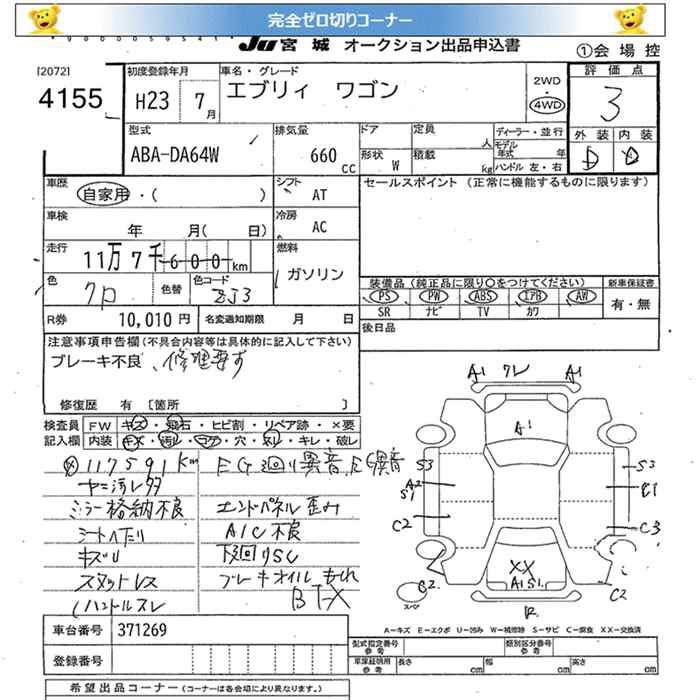 完全ゼロ切りコーナー
JU 宮城 オークション出品申込書
①会場控
[2072]
4155
初度登録年月
H23 7月
車名・グレード
エブリィ ワゴン
2WD
・
4WD
評価点
3
外装 内装
D D
型式
ABA-DA64W
排気量
660 CC
ドア
定員 人
形状 W
積載 kg
ディーラー・並行
モデル年式 年
ハンドル 左・右
車歴
自家用・( )
シフト
AT
セールスポイント (正常に機能するものに限ります)
車検
年 月( 日)
冷房
AC
走行
11万7千600km
燃料
ガソリン
色
クロ
色替
色コード
ZJ3
装備品 (純正品に限り○をつけてください)
新車保証書
PS PW ABS エアB AW
有・無
SR ナビ TV カワ
R券
10,010 円
名変通知期限 月 日
後日品
注意事項申告欄(不具合内容等は具体的に記入して下さい)
ブレーキ不良、修理要す
修復歴 有 〔箇所 〕
検査員記入欄
FW キズ・飛石・ヒビ割・リペア跡・×要
内装 キズ・汚れ・コゲ・穴・スレ・キレ・破レ
117591Km
EG廻り異音、EG異音
ヤニ汚レ多
ミラー格納不良
エンドパネル歪み
シートヘたり
A/C不良
キズU
下廻りSC
スタットレス
ブレーキオイルもれ
ハンドルスレ
BT-X
A1 クレ A1
A1
S3 S3
A2
S1
E1
C2 C3
XX
A1S1
B2 C2
スペア
R
A-キズ E-エクボ U-凹み W-補修跡 S-サビ C-腐食 XX-交換済
車台番号
371269
型式指定番号
参考
類別区分番号
参考
登録番号
車庫証明用
参考
長さ cm
幅 cm
高さ cm
希望出品コーナー (コーナーは各会場により異なります。)